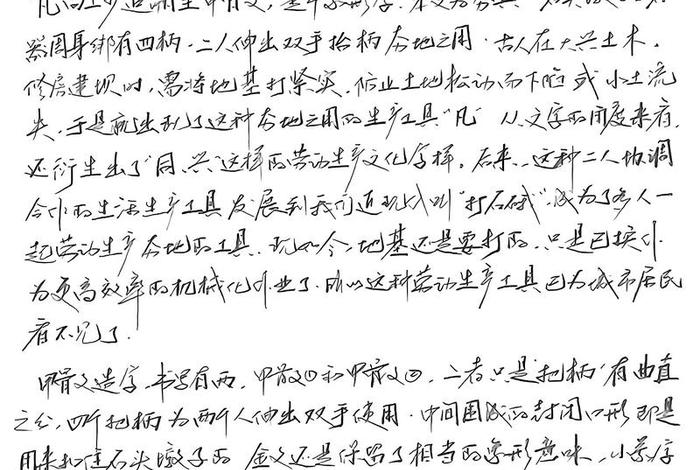 凡字上少造期生甲骨文，是个象形字。本义为夯具
器周身绑有四柄，二人伸出双手抬柄夯地之用。古人在大兴土木，
修房建坝时，需将地基打紧实，防止土地松动而下陷或水土流
失，于是就出现了这种夯地之用的生产工具“凡”从文字的角度来看，
还衍生出了“同、兴”这样的劳动生产文化字样。后来，这种二人协调
合作的生活生产工具发展到我们近现代叫“打石硪”，成为了多人一
起劳动生产夯地的工具。现如今，地基还是要打的，只是已换作
为更高效率的机械化作业了。所以这种劳动生产工具已为城市居民
看不见了。
甲骨文造字，书写有两，甲骨文①和甲骨文②，二者只是“把柄”有曲直
之分，四个把柄为两个人伸出双手使用。中间围成的封闭口形即是
用来扣住石头墩子的，金文还是保留了相当的象形意味，小篆字